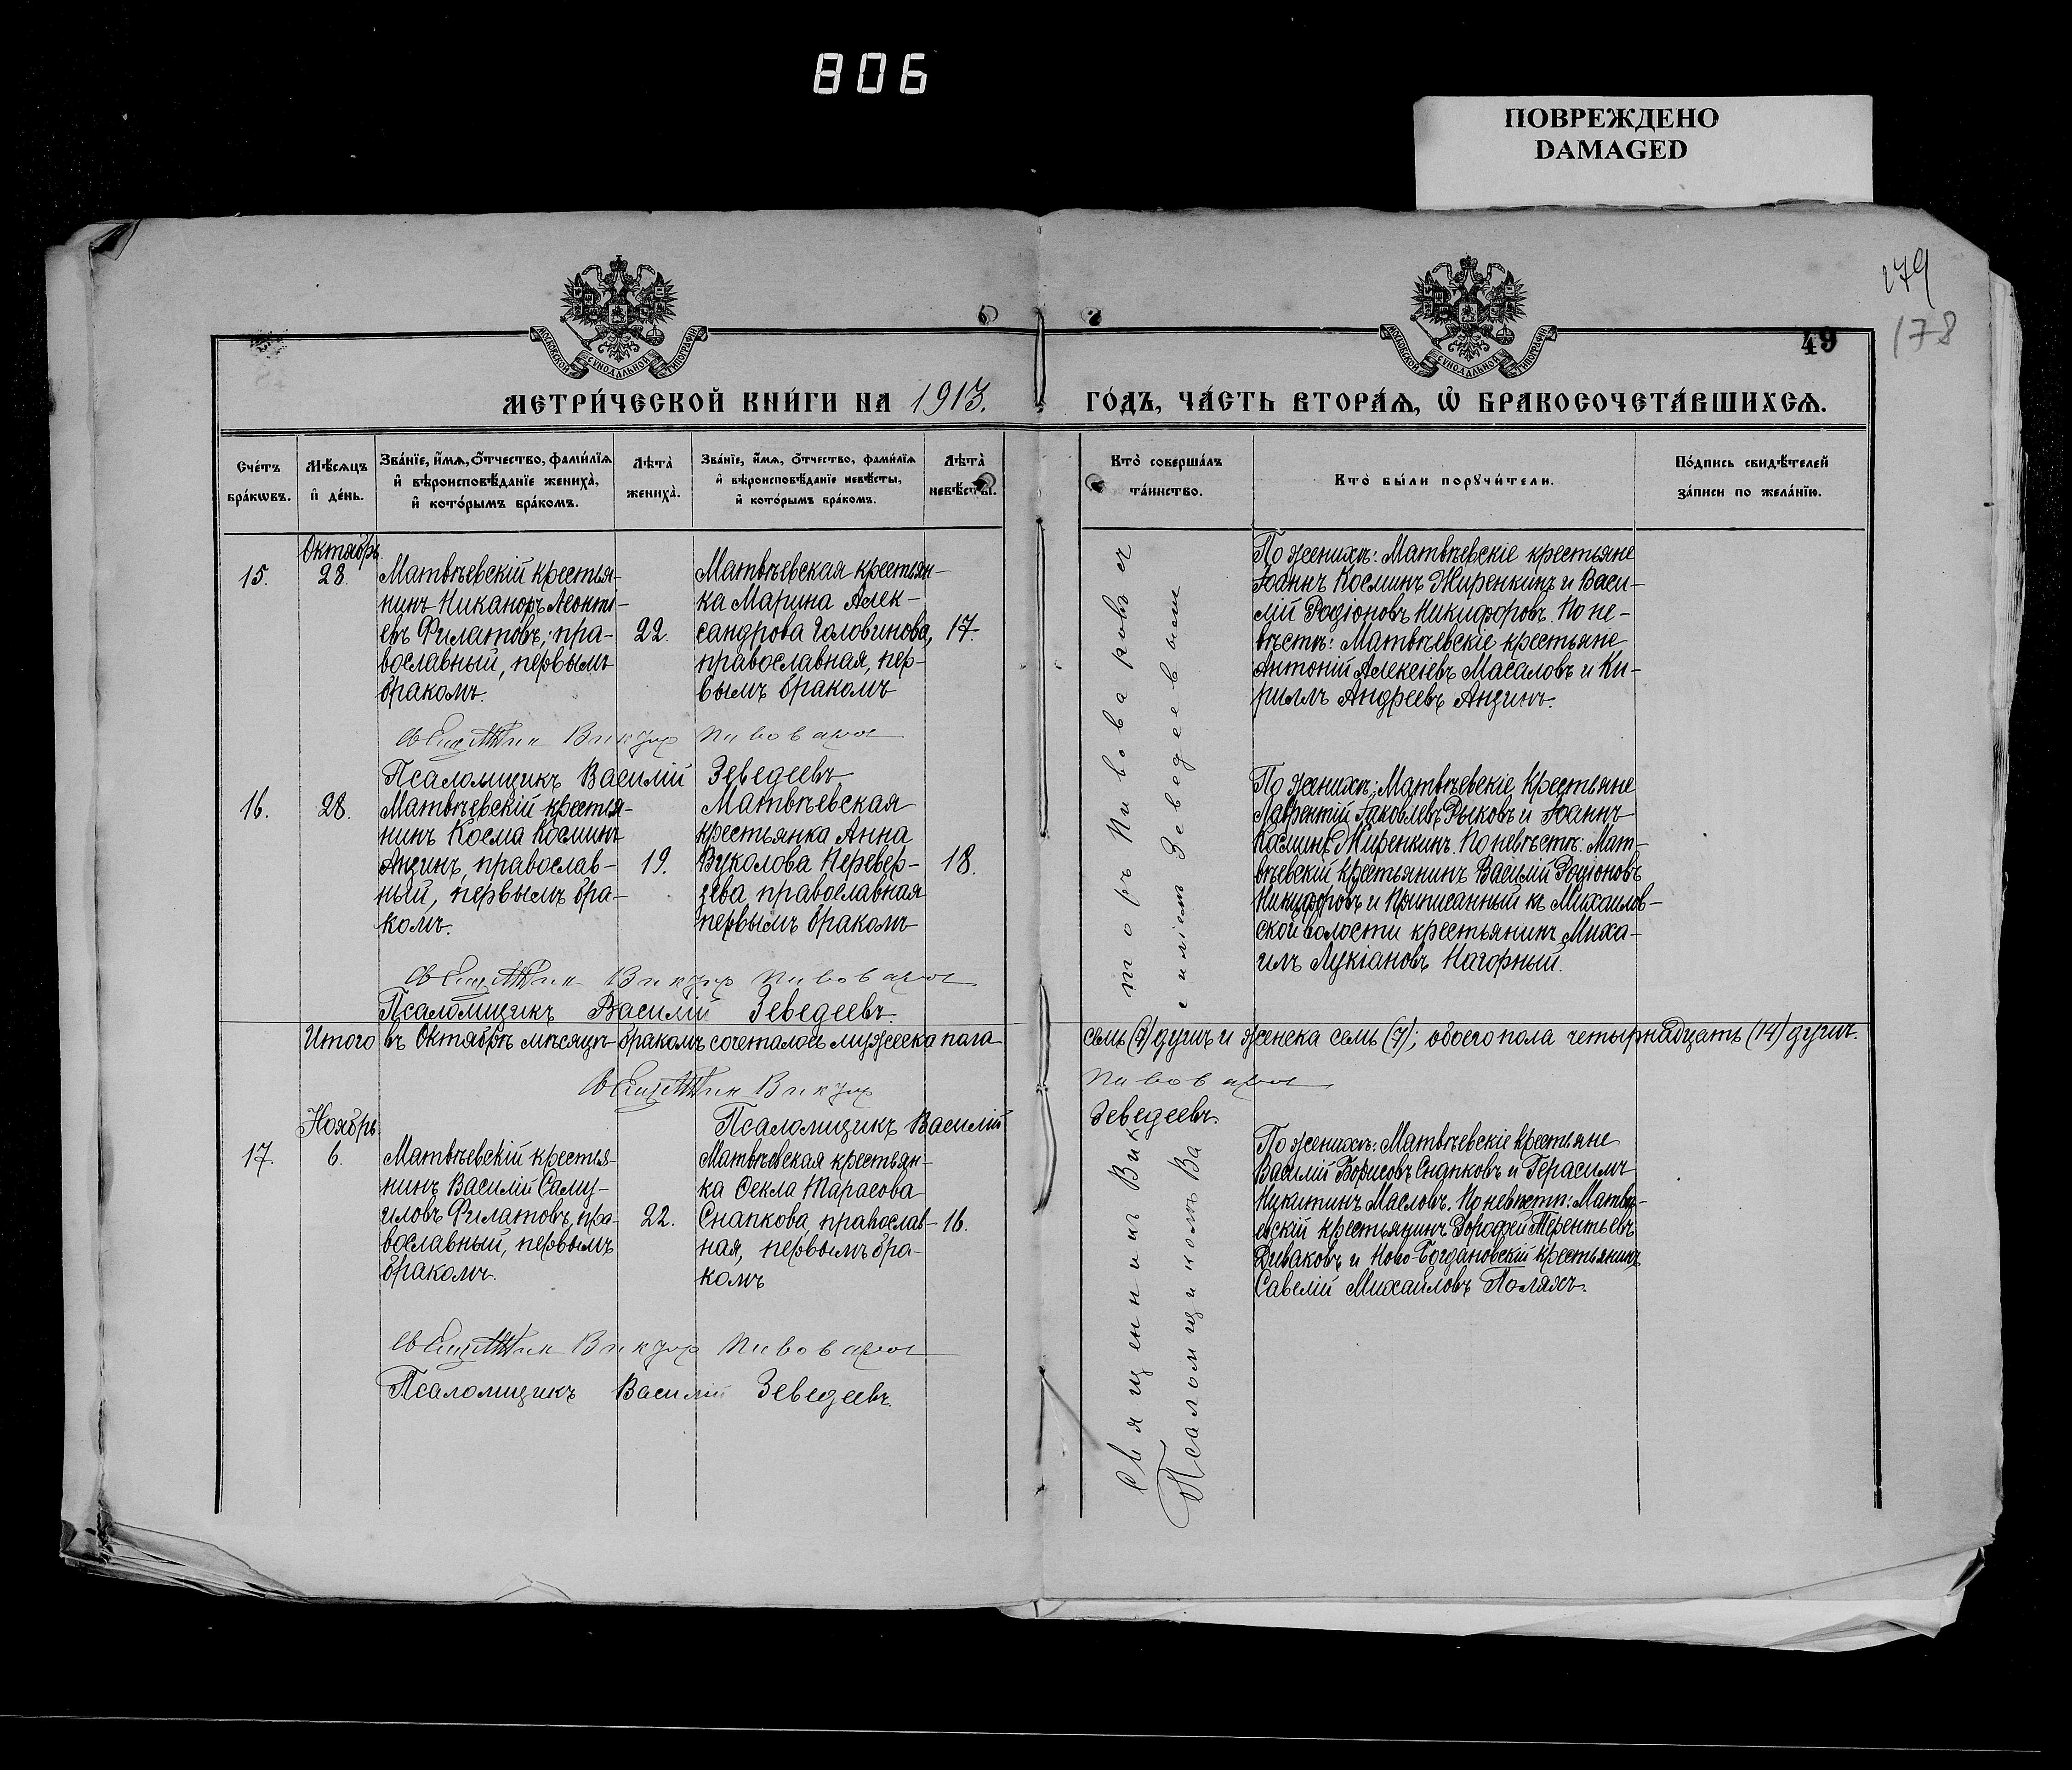 806
ПОВРЕЖДЕНО
DAMAGED
179
178
49
МОСКОВСКОЙ СѴНОДАЛЬНОЙ ТИПОГРАФІИ
МОСКОВСКОЙ СѴНОДАЛЬНОЙ ТИПОГРАФІИ
МЕТРИ́ЧЕСКОЙ КНИ́ГИ НА 1913.
ГО́ДЪ, ЧА́СТЬ ВТОРА́Ѧ, Ѽ БРАКОСОЧЕТА́ВШИХСѦ.
Сче́тъ
бра́кѡвъ.
Мѣ́сяцъ
и҆ де́нь.
Зва́нїе, и҆́мѧ, ѻ҆́тчество, фами́лїѧ
и҆ вѣроисповѣ́данїе жениха̀,
и҆ кото́рымъ бра́комъ.
Лѣта̀
жениха̀.
Зва́нїе, и҆́мѧ, ѻ҆́тчество, фами́лїѧ
и҆ вѣроисповѣ́данїе невѣ́сты,
и҆ кото́рымъ бра́комъ.
Лѣта̀
невѣ́сты.
Кто̀ соверша́лъ
та́инство.
Кто̀ бы́ли порꙋчи́тели.
По́дпись свидѣ́телей
за́писи по жела́нїю.
15.
Октябрь
28.
Матвѣевскій крестья-
нинъ Никаноръ Леонтi-
евъ Филатовъ, пра-
вославный, первымъ
бракомъ.
22.
Матвѣевская крестьян-
ка Марина Алек-
сандрова Головинова,
православная, пер-
вымъ бракомъ
17.
По женихѣ: Матвѣевскіе крестьяне
Іоаннъ Косминъ Жиренкинъ и Васи-
лій Родіоновъ Никифоровъ. По не-
вѣстѣ: Матвѣевскіе крестьяне
Антоній Алексѣевъ Масаловъ и Ки-
риллъ Андреевъ Анзинъ.
Священник Виктор Пивоваров
Псаломщикъ Василій Зеведеевъ
16.
28.
Матвѣевскій крестья-
нинъ Косма Косминъ
Анзинъ, православ-
ный, первымъ бра-
комъ.
19.
Матвѣевская
крестьянка Анна
Вуколова Перевер-
зева православная
первымъ бракомъ
18.
По женихѣ: Матвѣевскіе крестьяне
Лаврентій Іаковлевъ Рыковъ и Іоаннъ
Косминъ Жиренкинъ. По невѣстѣ: Мат-
вѣевскій крестьянинъ Василій Родіоновъ
Никифоровъ и приписанный къ Михайлов-
ской волости крестьянинъ Миха-
илъ Лукіановъ Нагорный.
Священник Виктор Пивоваров
Псаломщикъ Василій Зеведеевъ.
Итого въ Октябрѣ мѣсяцѣ бракомъ сочеталось мужеска пола
семь (7) душъ и женска семь (7); обоего пола четырнадцать (14) душъ.
Священник Виктор Пивоваров
Псаломщикъ Василій Зеведеевъ.
17.
Ноябрь
6.
Матвѣевскій крестья-
нинъ Василій Саму-
иловъ Филатовъ, пра-
вославный, первымъ
бракомъ.
22.
Матвѣевская крестьян-
ка Ѳекла Тарасова
Снапкова, православ-
ная, первымъ бра-
комъ
16.
По женихѣ: Матвѣевскіе крестьяне
Василій Борисовъ Снапковъ и Герасимъ
Никитинъ Масловъ. По невѣстѣ: Матвѣ-
евскій крестьянинъ Дорофей Терентьевъ
Диваковъ и Ново-Богдановскій крестьянинъ
Савелій Михайловъ Поляхъ.
Священник Виктор Пивоваров
Псаломщикъ Василій Зеведеевъ.
Священникъ Викторъ Пивоваровъ съ
Псаломщикомъ Василіемъ Зеведеевымъ